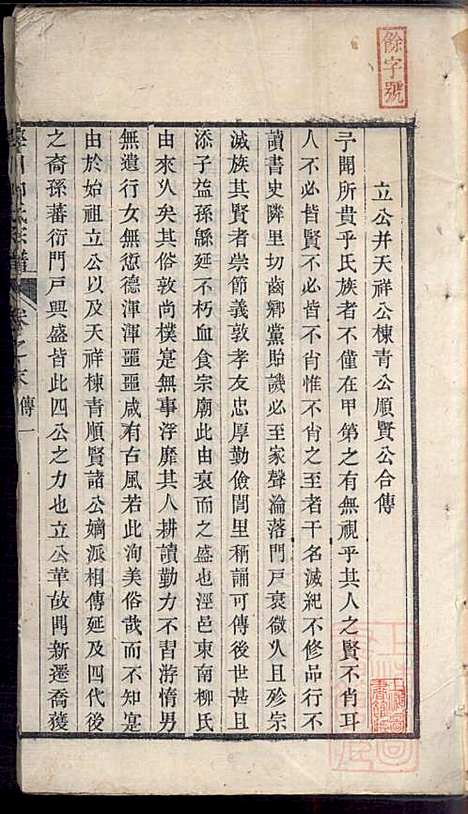 餘字號
立公并天祥公棟青公順賢公合傳
予聞所貴乎氏族者不僅在甲第之有無視乎其人之賢不肖耳
人不必皆賢不必皆不肖惟不肖之至者干名滅紀不修品行不
讀書史隣里切齒鄉黨貽譏必至家聲淪落門戸衰微乆且殄宗
滅族其賢者崇節義敦孝友忠厚勤儉閭里稱誦可傳後世甚且
添子益孫緜延不朽血食宗廟此由衰而之盛也涇邑東南柳氏
由來乆矣其俗敦尚樸寔無事浮靡其人耕讀勤力不習游惰男
無遺行女無慝德渾渾噩噩咸有古風若此洵美俗哉而不知寔
由於始祖立公以及天祥棟青順賢諸公嫡派相傳延及四代後
之裔孫蕃衍門戸興盛皆此四公之力也立公華故閈新遷喬獲
氏宗譜
卷之末 傳 一